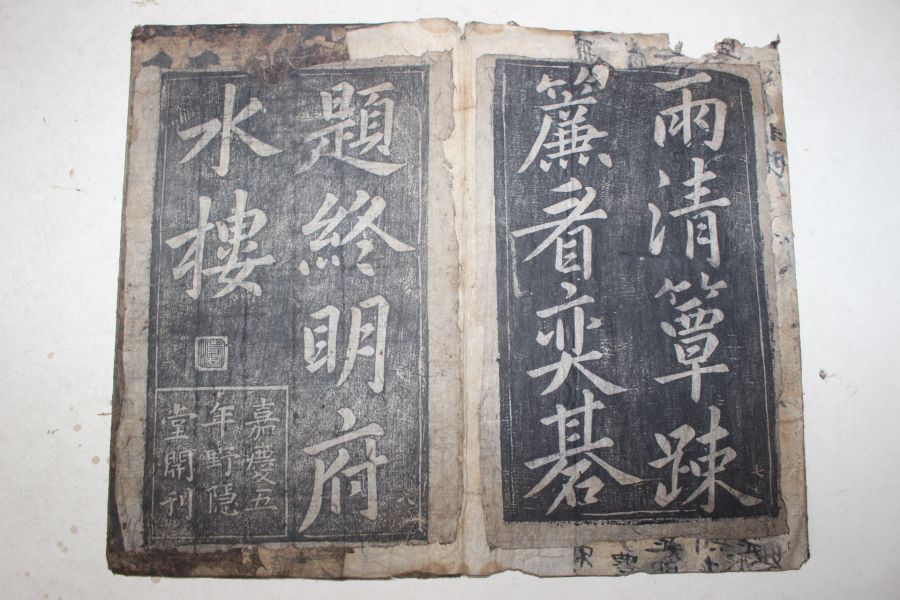 雨清簟踈
簾看奕碁
七
題終明府
八
水樓
嘉慶五
年野隱
堂開刊